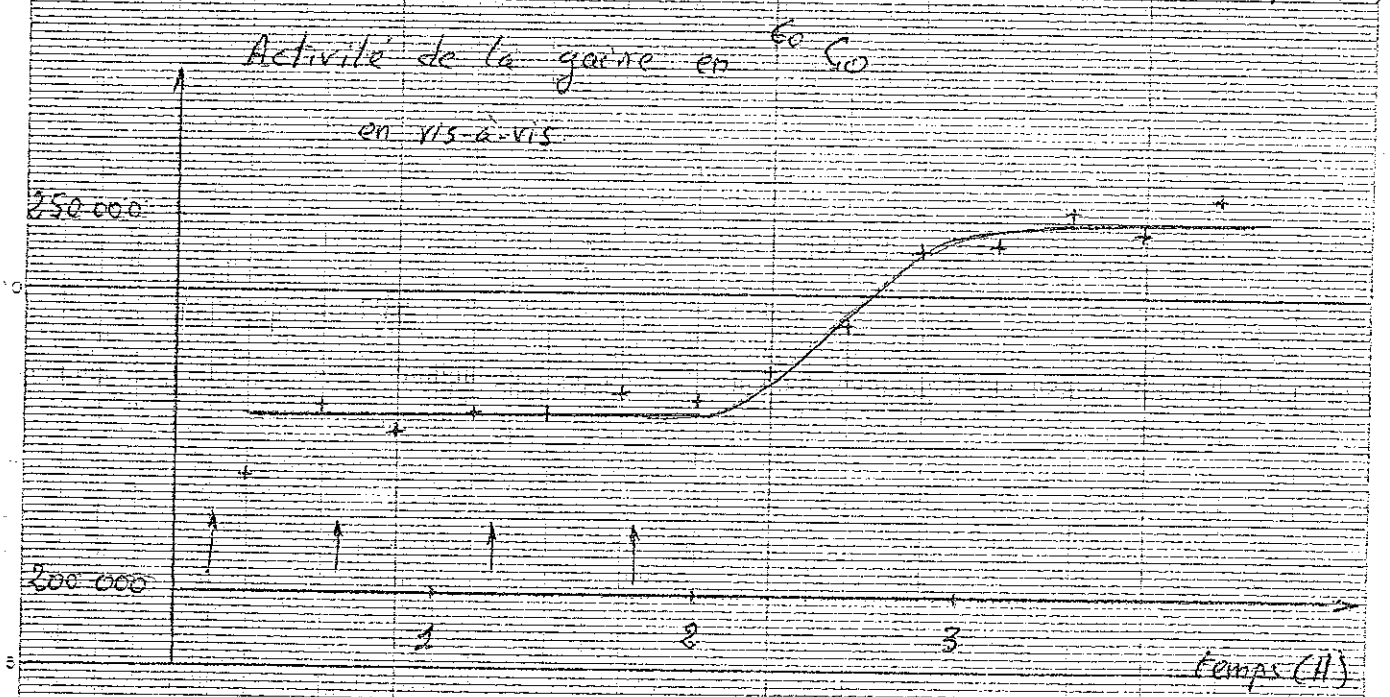 Activité de la gaine en ⁶⁰Co
en vis-à-vis
250 000
200 000
1
2
3
temps (H)